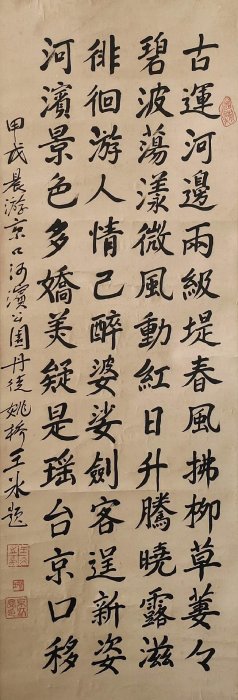 古運河邊兩級堤春風拂柳草萋々
碧波蕩漾微風動紅日升騰曉露滋
徘徊游人情已醉婆娑劍客逞新姿
河濱景色多嬌美疑是瑶台京口移
甲戌晨游京口河濱公園丹徒姚橋王冰题